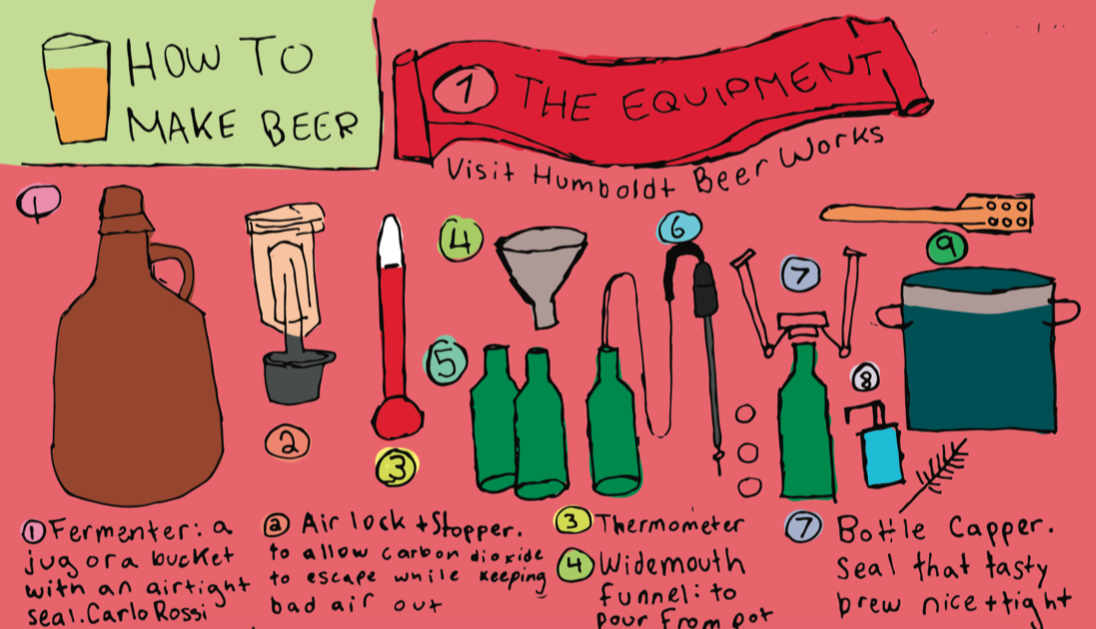 HOW TO
MAKE BEER
1 THE EQUIPMENT
Visit Humboldt Beer Works
1
2
3
4
5
6
7
8
9
1 Fermenter: a
jug or a bucket
with an airtight
seal. Carlo Rossi
2 Air lock + Stopper.
to allow carbon dioxide
to escape while keeping
bad air out
3 Thermometer
4 Widemouth
funnel: to
pour from pot
7 Bottle Capper.
Seal that tasty
brew nice + tight